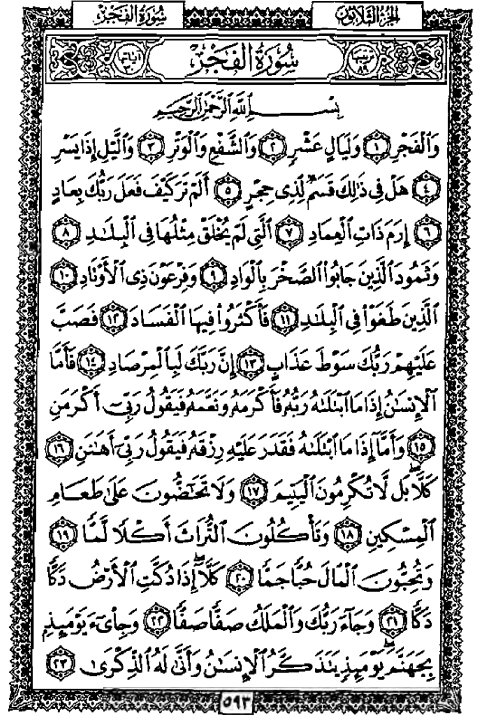 الجزء الثلاثون سورة الفجر
سُورَةُ الفَجْرِ
بِسْمِ اللَّهِ الرَّحْمَٰنِ الرَّحِيمِ
وَالْفَجْرِ ١ وَلَيَالٍ عَشْرٍ ٢ وَالشَّفْعِ وَالْوَتْرِ ٣ وَاللَّيْلِ إِذَا يَسْرِ
٤ هَلْ فِي ذَٰلِكَ قَسَمٌ لِّذِي حِجْرٍ ٥ أَلَمْ تَرَ كَيْفَ فَعَلَ رَبُّكَ بِعَادٍ
٦ إِرَمَ ذَاتِ الْعِمَادِ ٧ الَّتِي لَمْ يُخْلَقْ مِثْلُهَا فِي الْبِلَادِ ٨
وَثَمُودَ الَّذِينَ جَابُوا الصَّخْرَ بِالْوَادِ ٩ وَفِرْعَوْنَ ذِي الْأَوْتَادِ ١٠
الَّذِينَ طَغَوْا فِي الْبِلَادِ ١١ فَأَكْثَرُوا فِيهَا الْفَسَادَ ١٢ فَصَبَّ
عَلَيْهِمْ رَبُّكَ سَوْطَ عَذَابٍ ١٣ إِنَّ رَبَّكَ لَبِالْمِرْصَادِ ١٤ فَأَمَّا
الْإِنسَانُ إِذَا مَا ابْتَلَاهُ رَبُّهُ فَأَكْرَمَهُ وَنَعَّمَهُ فَيَقُولُ رَبِّي أَكْرَمَنِ
١٥ وَأَمَّا إِذَا مَا ابْتَلَاهُ فَقَدَرَ عَلَيْهِ رِزْقَهُ فَيَقُولُ رَبِّي أَهَانَنِ ١٦
كَلَّا بَل لَّا تُكْرِمُونَ الْيَتِيمَ ١٧ وَلَا تَحَاضُّونَ عَلَىٰ طَعَامِ
الْمِسْكِينِ ١٨ وَتَأْكُلُونَ التُّرَاثَ أَكْلًا لَّمًّا ١٩
وَتُحِبُّونَ الْمَالَ حُبًّا جَمًّا ٢٠ كَلَّا إِذَا دُكَّتِ الْأَرْضُ دَكًّا
دَكًّا ٢١ وَجَاءَ رَبُّكَ وَالْمَلَكُ صَفًّا صَفًّا ٢٢ وَجِايءَ يَوْمَئِذٍ
بِجَهَنَّمَ يَوْمَئِذٍ يَتَذَكَّرُ الْإِنسَانُ وَأَنَّىٰ لَهُ الذِّكْرَىٰ ٢٣
٥٩٣